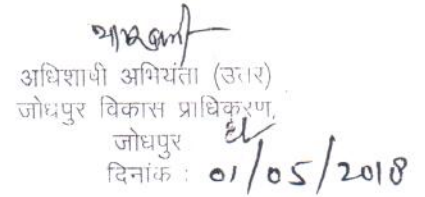 अधिशाषी अभियंता (उत्तर)
जोधपुर विकास प्राधिकरण,
जोधपुर
दिनांक : 01/05/2018